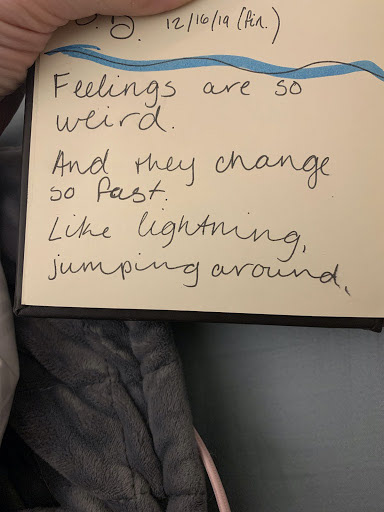 12/16/19 (fin.)
Feelings are so
weird.
And they change
so fast.
Like lightning,
jumping around.